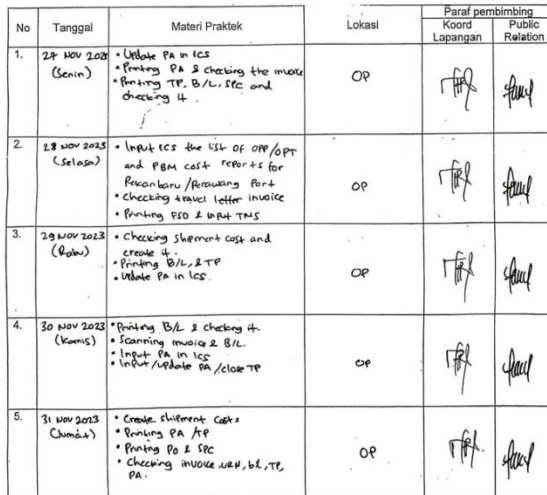 Paraf pembimbing
No Tanggal Materi Praktek Lokasi Koord Lapangan Public Relation
1. 27 Nov 2023 (Senin) OP
• Update PA in ICS
• Printing PA & checking the invoice
• Printing TP, B/L, SPC and
checking it.
2. 28 Nov 2023 (Selasa) OP
• Input ICS the list of OPP/OPT
and PBM cost reports for
Pekanbaru/Perawang Port
• Checking travel letter invoice
• Printing FSO & input TMS
3. 29 Nov 2023 (Rabu) OP
• Checking shipment cost and
create it.
• Printing B/L, & TP
• Update PA in ICS.
4. 30 Nov 2023 (Kamis) OP
• Printing B/L & checking it.
• Scanning invoice & B/L.
• Input PA in ICS
• Input/update PA/close TP
5. 31 Nov 2023 (Jum'at) OP
• Create shipment costs
• Printing PA /TP
• Printing PO & SPC
• Checking invoice, URN, bl, TP,
PA.